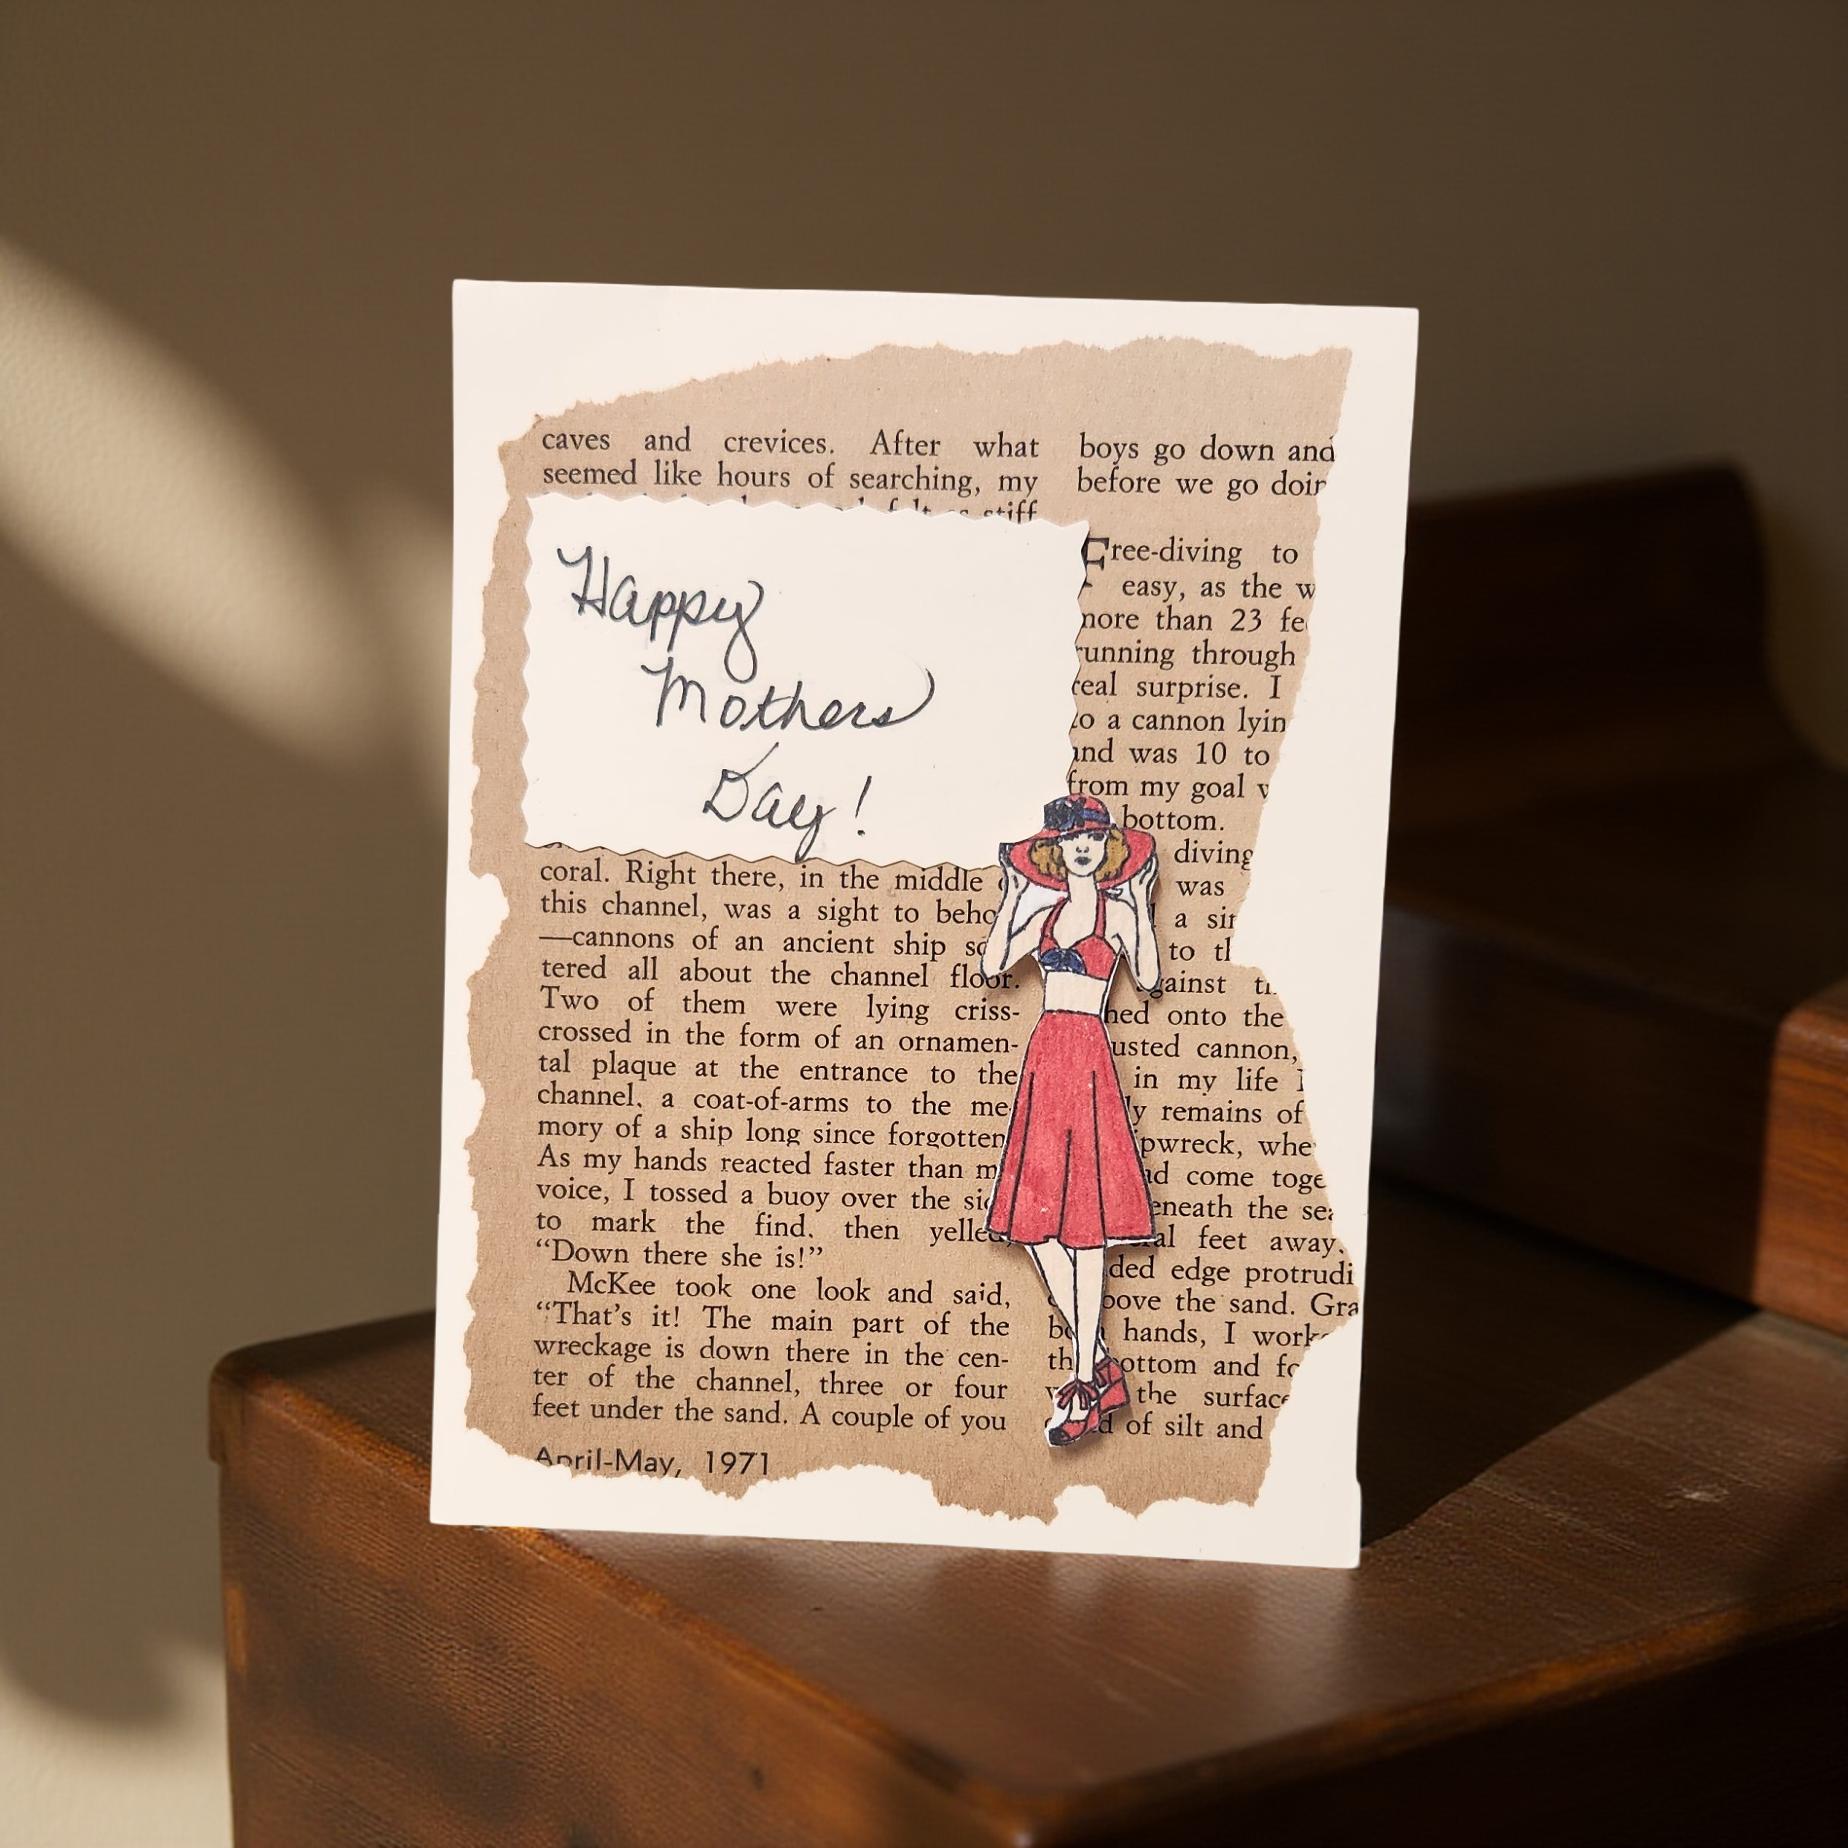 caves and crevices. After what
seemed like hours of searching, my
stiff
Happy
Mothers
Day!
coral. Right there, in the middle
this channel, was a sight to beho
—cannons of an ancient ship sc
tered all about the channel floor.
Two of them were lying criss-
crossed in the form of an ornamen-
tal plaque at the entrance to the
channel, a coat-of-arms to the me-
mory of a ship long since forgotten
As my hands reacted faster than m
voice, I tossed a buoy over the sid
to mark the find, then yelled,
“Down there she is!”
McKee took one look and said,
“That’s it! The main part of the
wreckage is down there in the cen-
ter of the channel, three or four
feet under the sand. A couple of you
April-May, 1971
boys go down and
before we go doin
Free-diving to
easy, as the w
more than 23 fe
running through
real surprise. I
to a cannon lyin
and was 10 to
from my goal
bottom.
diving
was
a sin
to th
gainst
hed onto the
usted cannon,
in my life
ly remains of
ipwreck, whe
come toge
eneath the sea
al feet away.
ded edge protrudi
bove the sand. Gra
hands, I work
ottom and fo
the surface
of silt and